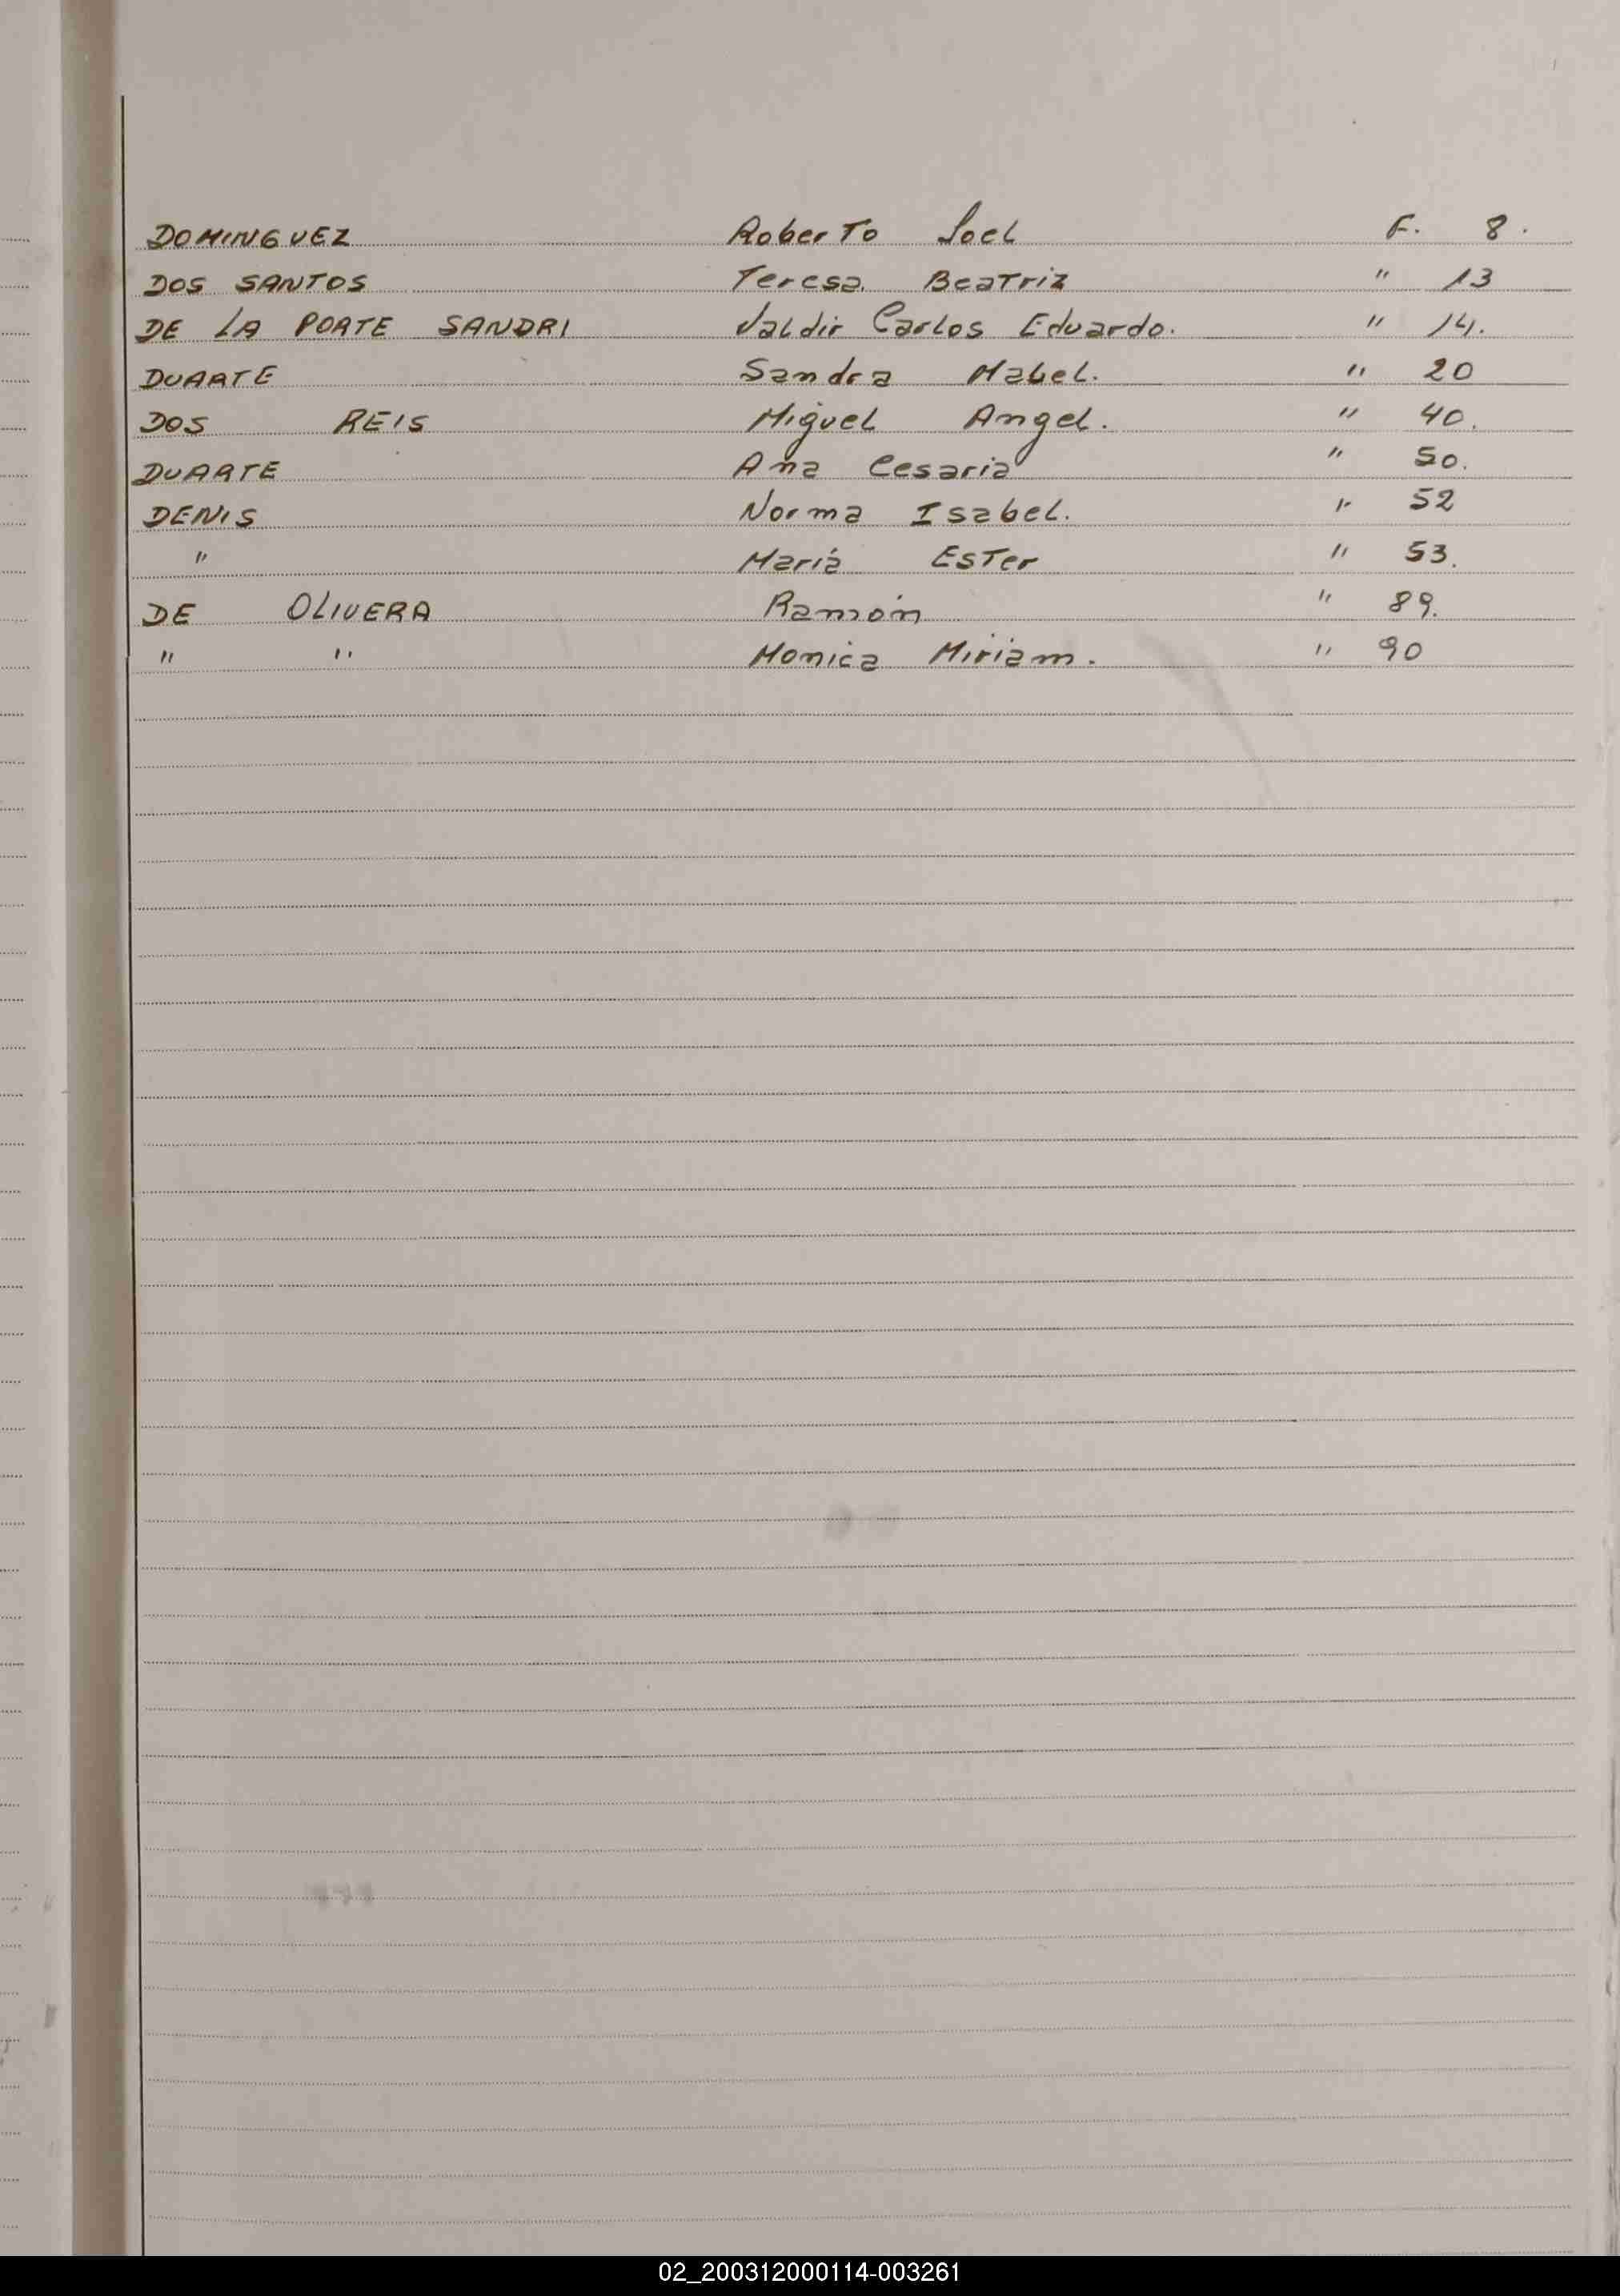 DOMINGUEZ Roberto Joel F. 8.
DOS SANTOS Teresa Beatriz " 13
DE LA PORTE SANDRI Valdir Carlos Eduardo. " 14.
DUARTE Sandra Mabel. " 20
DOS REIS Miguel Angel. " 40.
DUARTE Ana Cesaria " 50.
DENIS Norma Isabel. " 52
" María Ester " 53.
DE OLIVERA Ramón " 89.
" " Monica Miriam. " 90
02_200312000114-003261